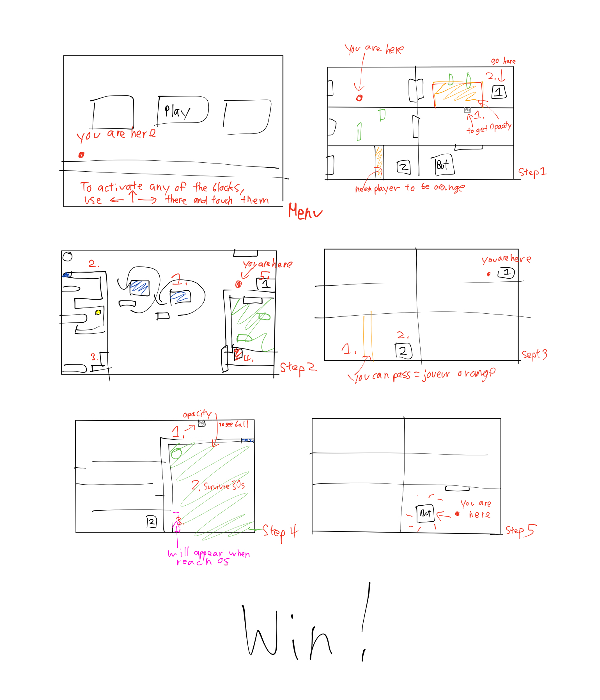 Play
you are here
To activate any of the blocks,
use ← ↑ → there and touch them
Menu
You are here
go here
2.
1
1.
to get Opacity
2
But
need player to be orange
Step 1
2.
1.
you are here
1
3.
4.
Step 2
you are here
1
1.
2.
2
You can pass = joueur orange
Sept 3
opacity
1.
2. Survive
2
Step 4
will appear when
reach 0s
But
you are
here
Step 5
Win!